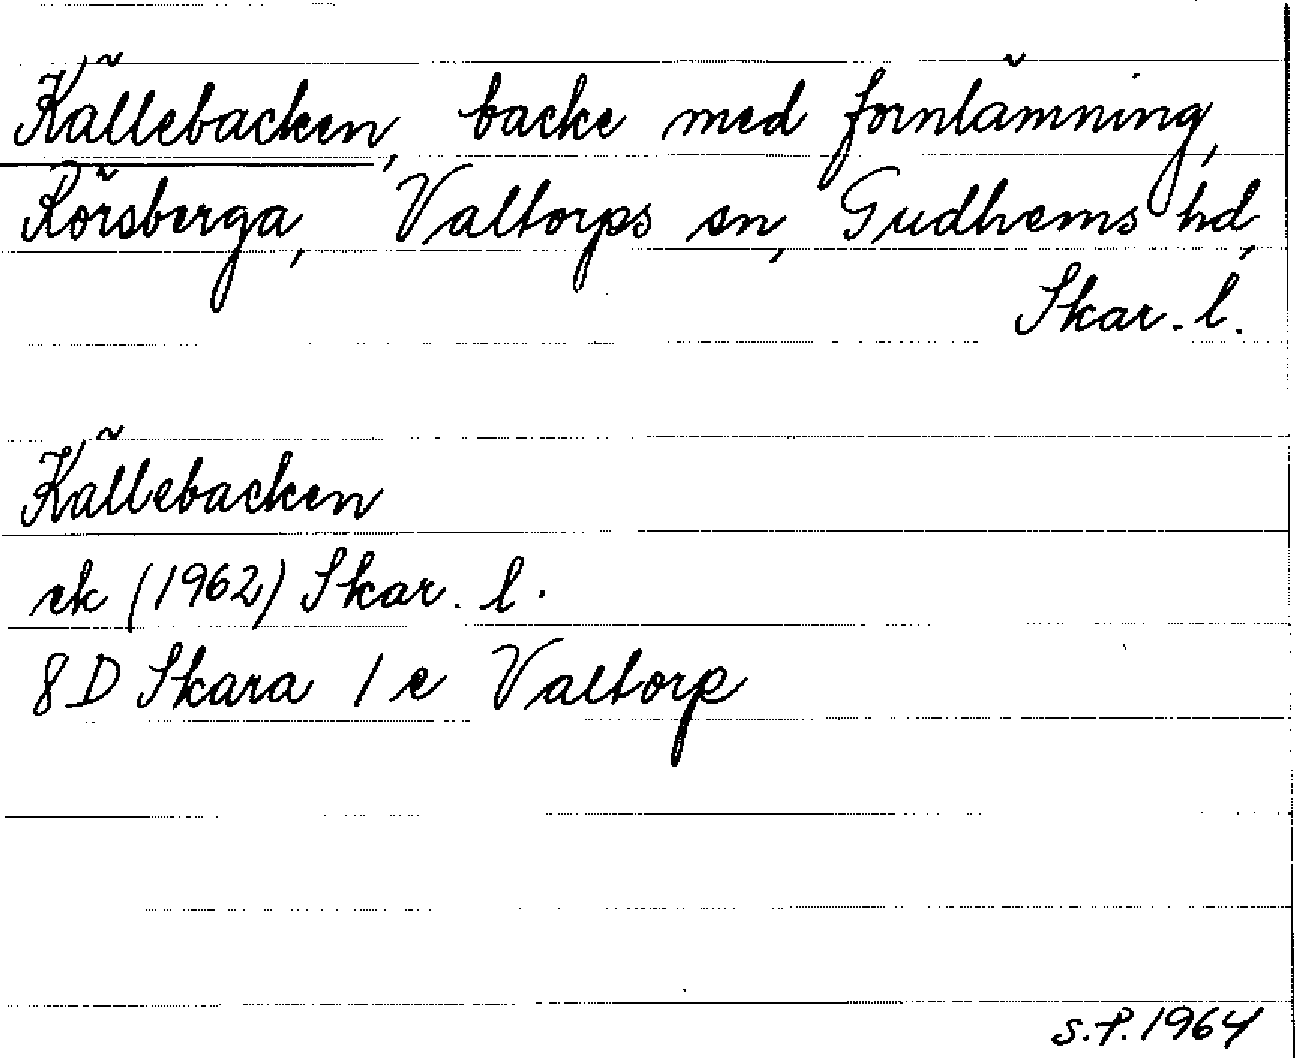 Källebacken, backe med fornlämning,
Rörsberga, Valtorps sn, Gudhems hd,
Skar. l.
Källebacken
ek (1962) Skar. l.
8D Skara 1 e Valtorp
S.F. 1964